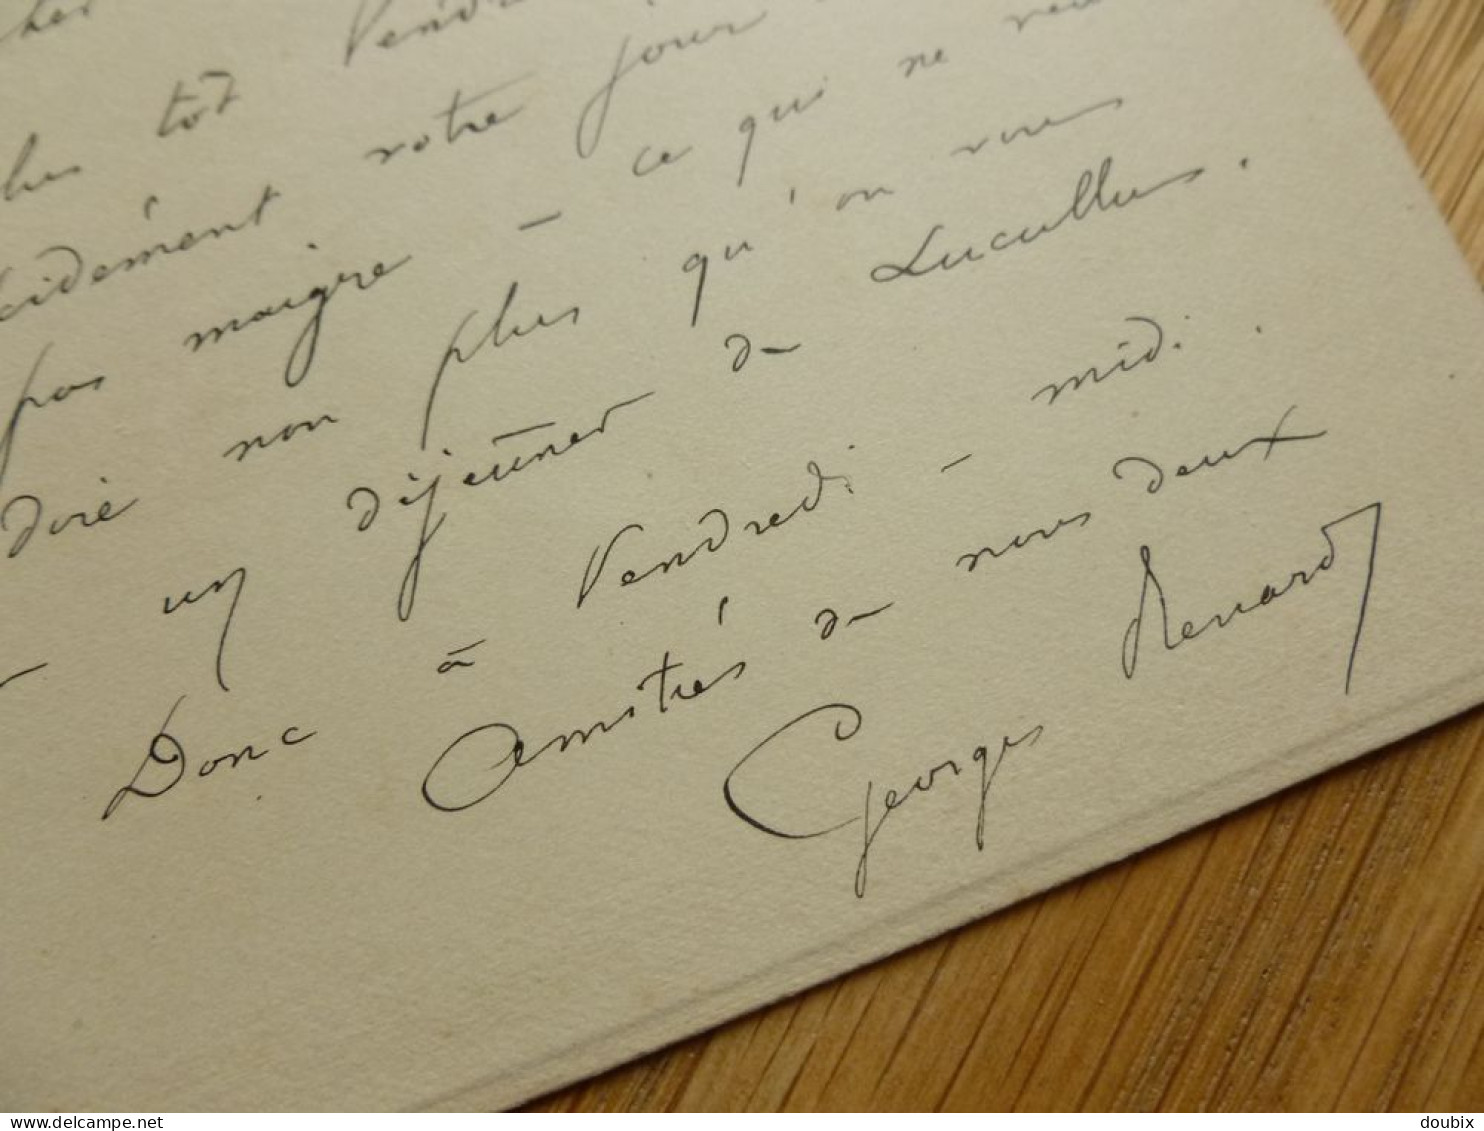 plus tôt Vendre
cidément votre jour
pas maigre – ce qui ne veu
dire non plus qu'on vous
un déjeuner de Lucullus.
Donc à Vendredi – midi.
Amitiés de nous deux
Georges Renard
www.delcampe.net
doubix